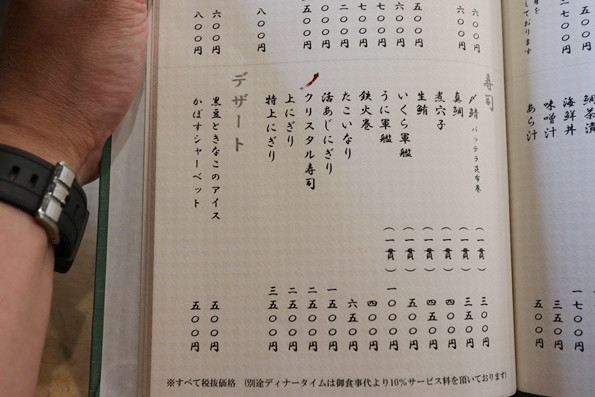 しております
七〇〇円
五〇〇円
六〇〇円
五〇〇円
六〇〇円
八〇〇円
八〇〇円
鯛茶漬
海鮮丼 一七〇〇円
味噌汁 三五〇円
あら汁 五〇〇円
寿司
〆鯖 バッテラ昆布巻 (一貫) 三〇〇円
真鯛 (一貫) 三五〇円
煮穴子 (一貫) 四〇〇円
生鮪 (一貫) 四五〇円
いくら軍艦 (一貫) 五〇〇円
うに軍艦 (一貫) 一〇〇〇円
鉄火巻 四〇〇円
たこいなり 六五〇円
活あじにぎり 一五〇〇円
クリスタル寿司 二五〇〇円
上にぎり 二五〇〇円
特上にぎり 三五〇〇円
デザート
黒豆ときなこのアイス 五〇〇円
かぼすシャーベット 五〇〇円
※すべて税抜価格 (別途ディナータイムは御食事代より10%サービス料を頂いております)